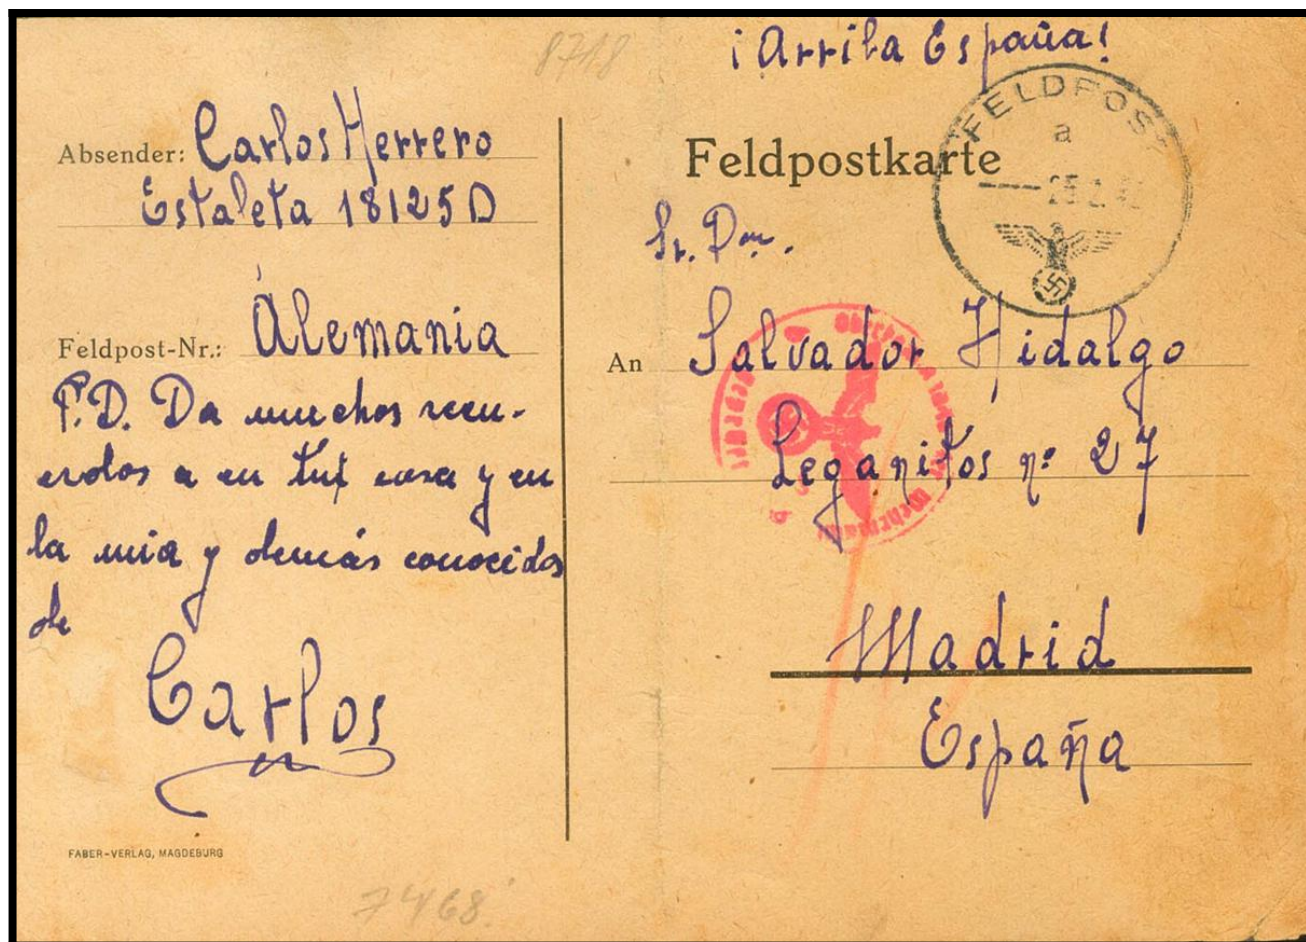 8718
¡Arriba España!
Absender: Carlos Herrero
Estafeta 18125 D
Feldpost-Nr.: Alemania
P.D. Da muchos recu-
erdos a en tu casa y en
la mia y demás conocidos
de
Carlos
FABER-VERLAG, MAGDEBURG
7468
Feldpostkarte
FELDPOST
a
Sr. Don.
An Salvador Hidalgo
Leganitos nº 27
Madrid
España